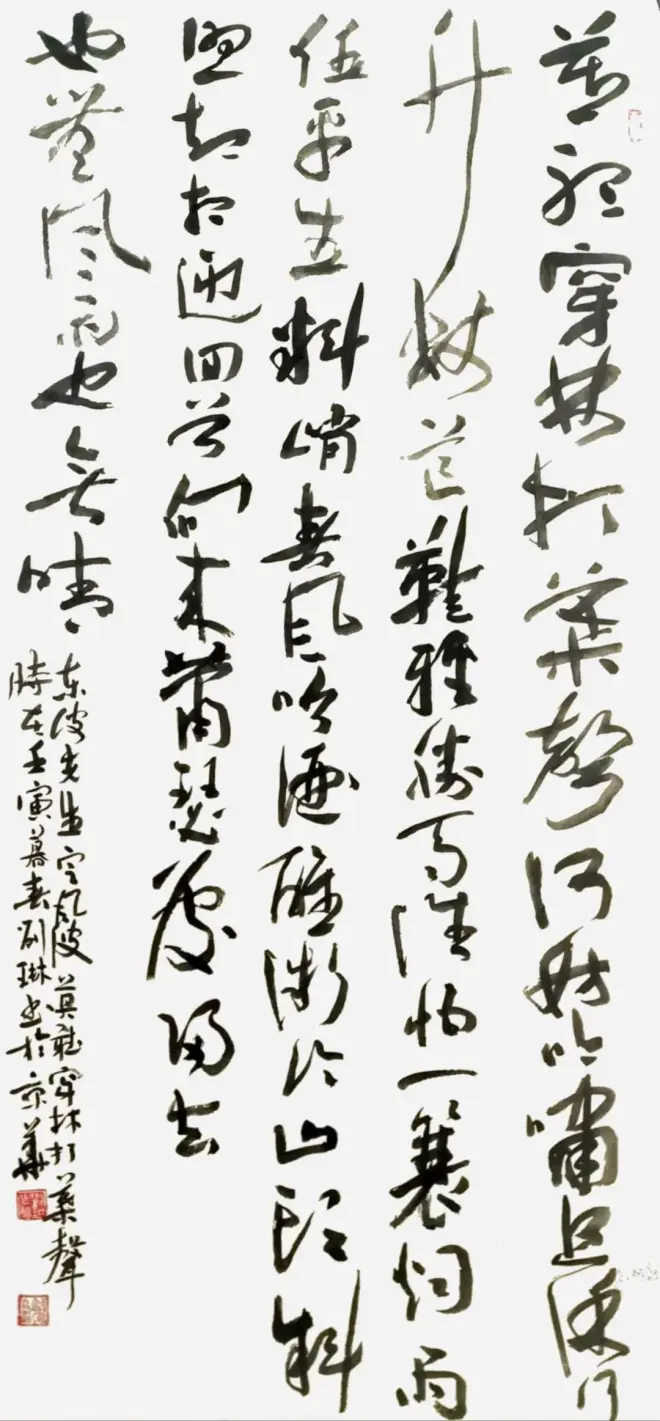 莫聽穿林打葉聲何妨吟嘯且徐行
竹杖芒鞋輕勝馬誰怕一蓑烟雨
任平生料峭春风吹酒醒微冷山頭斜
照却相迎回首向来蕭瑟處歸去
也無风雨也無晴
东坡先生定风波莫聽穿林打葉聲
時在壬寅暮春劉琳書於京華